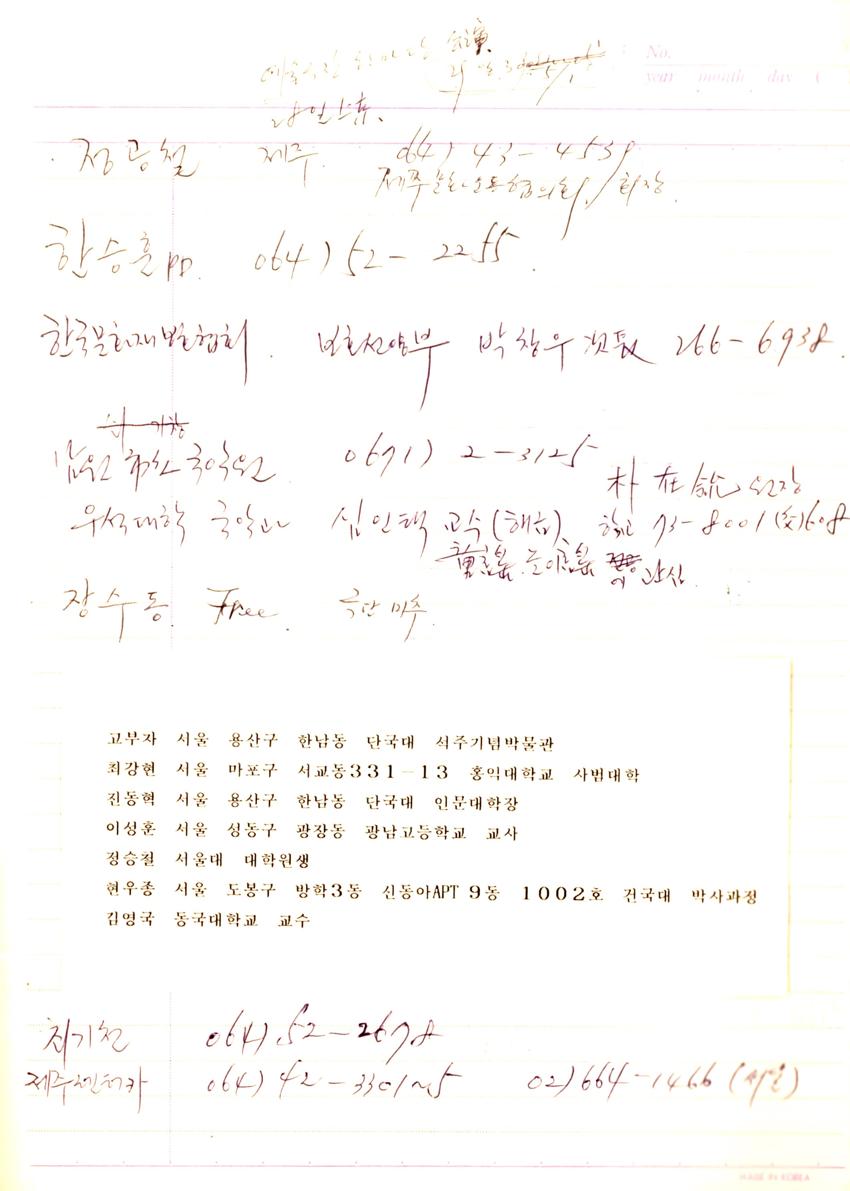 No.
year month day (
정공철 제주. 064) 43-4539
제주문화운동협의회 / 회장.
한승훈 PD. 064) 52-2255.
한국문화재보호협회. 박창우 次長 266-6938.
남원 국악원 0671) 2-3125
朴 在 원장
우석대학 국악과 심인택 교수 (해금), 학교 73-8001 (交)608
관심
장수동 Free. 극단 미추.
고부자 서울 용산구 한남동 단국대 석주기념박물관
최강현 서울 마포구 서교동331-13 홍익대학교 사범대학
진동혁 서울 용산구 한남동 단국대 인문대학장
이성훈 서울 성동구 광장동 광남고등학교 교사
정승철 서울대 대학원생
현우종 서울 도봉구 방학3동 신동아APT 9동 1002호 건국대 박사과정
김영국 동국대학교 교수
최기천 064).52-2678
제주렌터카 064) 42-3301~5 02)664-1466 (서울)
MADE IN KOREA